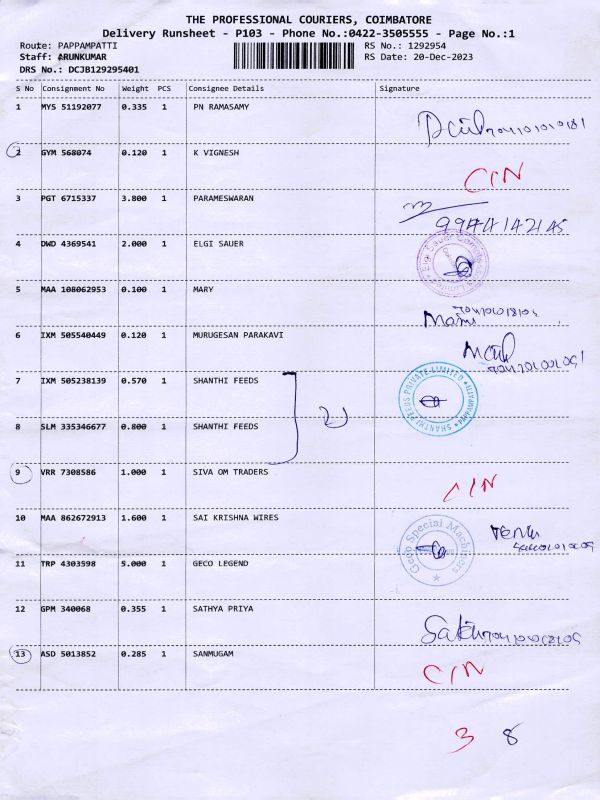 THE PROFESSIONAL COURIERS, COIMBATORE
Delivery Runsheet - P103 - Phone No.:0422-3505555 - Page No.:1
Route: PAPPAMPATTI RS No.: 1292954
Staff: ARUNKUMAR RS Date: 20-Dec-2023
DRS No.: DCJB129295401
S No Consignment No Weight PCS Consignee Details Signature
1 MYS 51192077 0.335 1 PN RAMASAMY
2 GYM 568074 0.120 1 K VIGNESH
CIN
3 PGT 6715337 3.800 1 PARAMESWARAN
9944142145
4 DWD 4369541 2.000 1 ELGI SAUER
5 MAA 108062953 0.100 1 MARY
6 IXM 505540449 0.120 1 MURUGESAN PARAKAVI
7 IXM 505238139 0.570 1 SHANTHI FEEDS
SHANTHI FEEDS PRIVATE LIMITED
PAPPAMPATTI
8 SLM 335346677 0.800 1 SHANTHI FEEDS
2
9 VRR 7308586 1.000 1 SIVA OM TRADERS
CIN
10 MAA 862672913 1.600 1 SAI KRISHNA WIRES
Geco Special Machines
11 TRP 4303598 5.000 1 GECO LEGEND
12 GPM 340068 0.355 1 SATHYA PRIYA
13 ASD 5013852 0.285 1 SANMUGAM
CIN
3 8